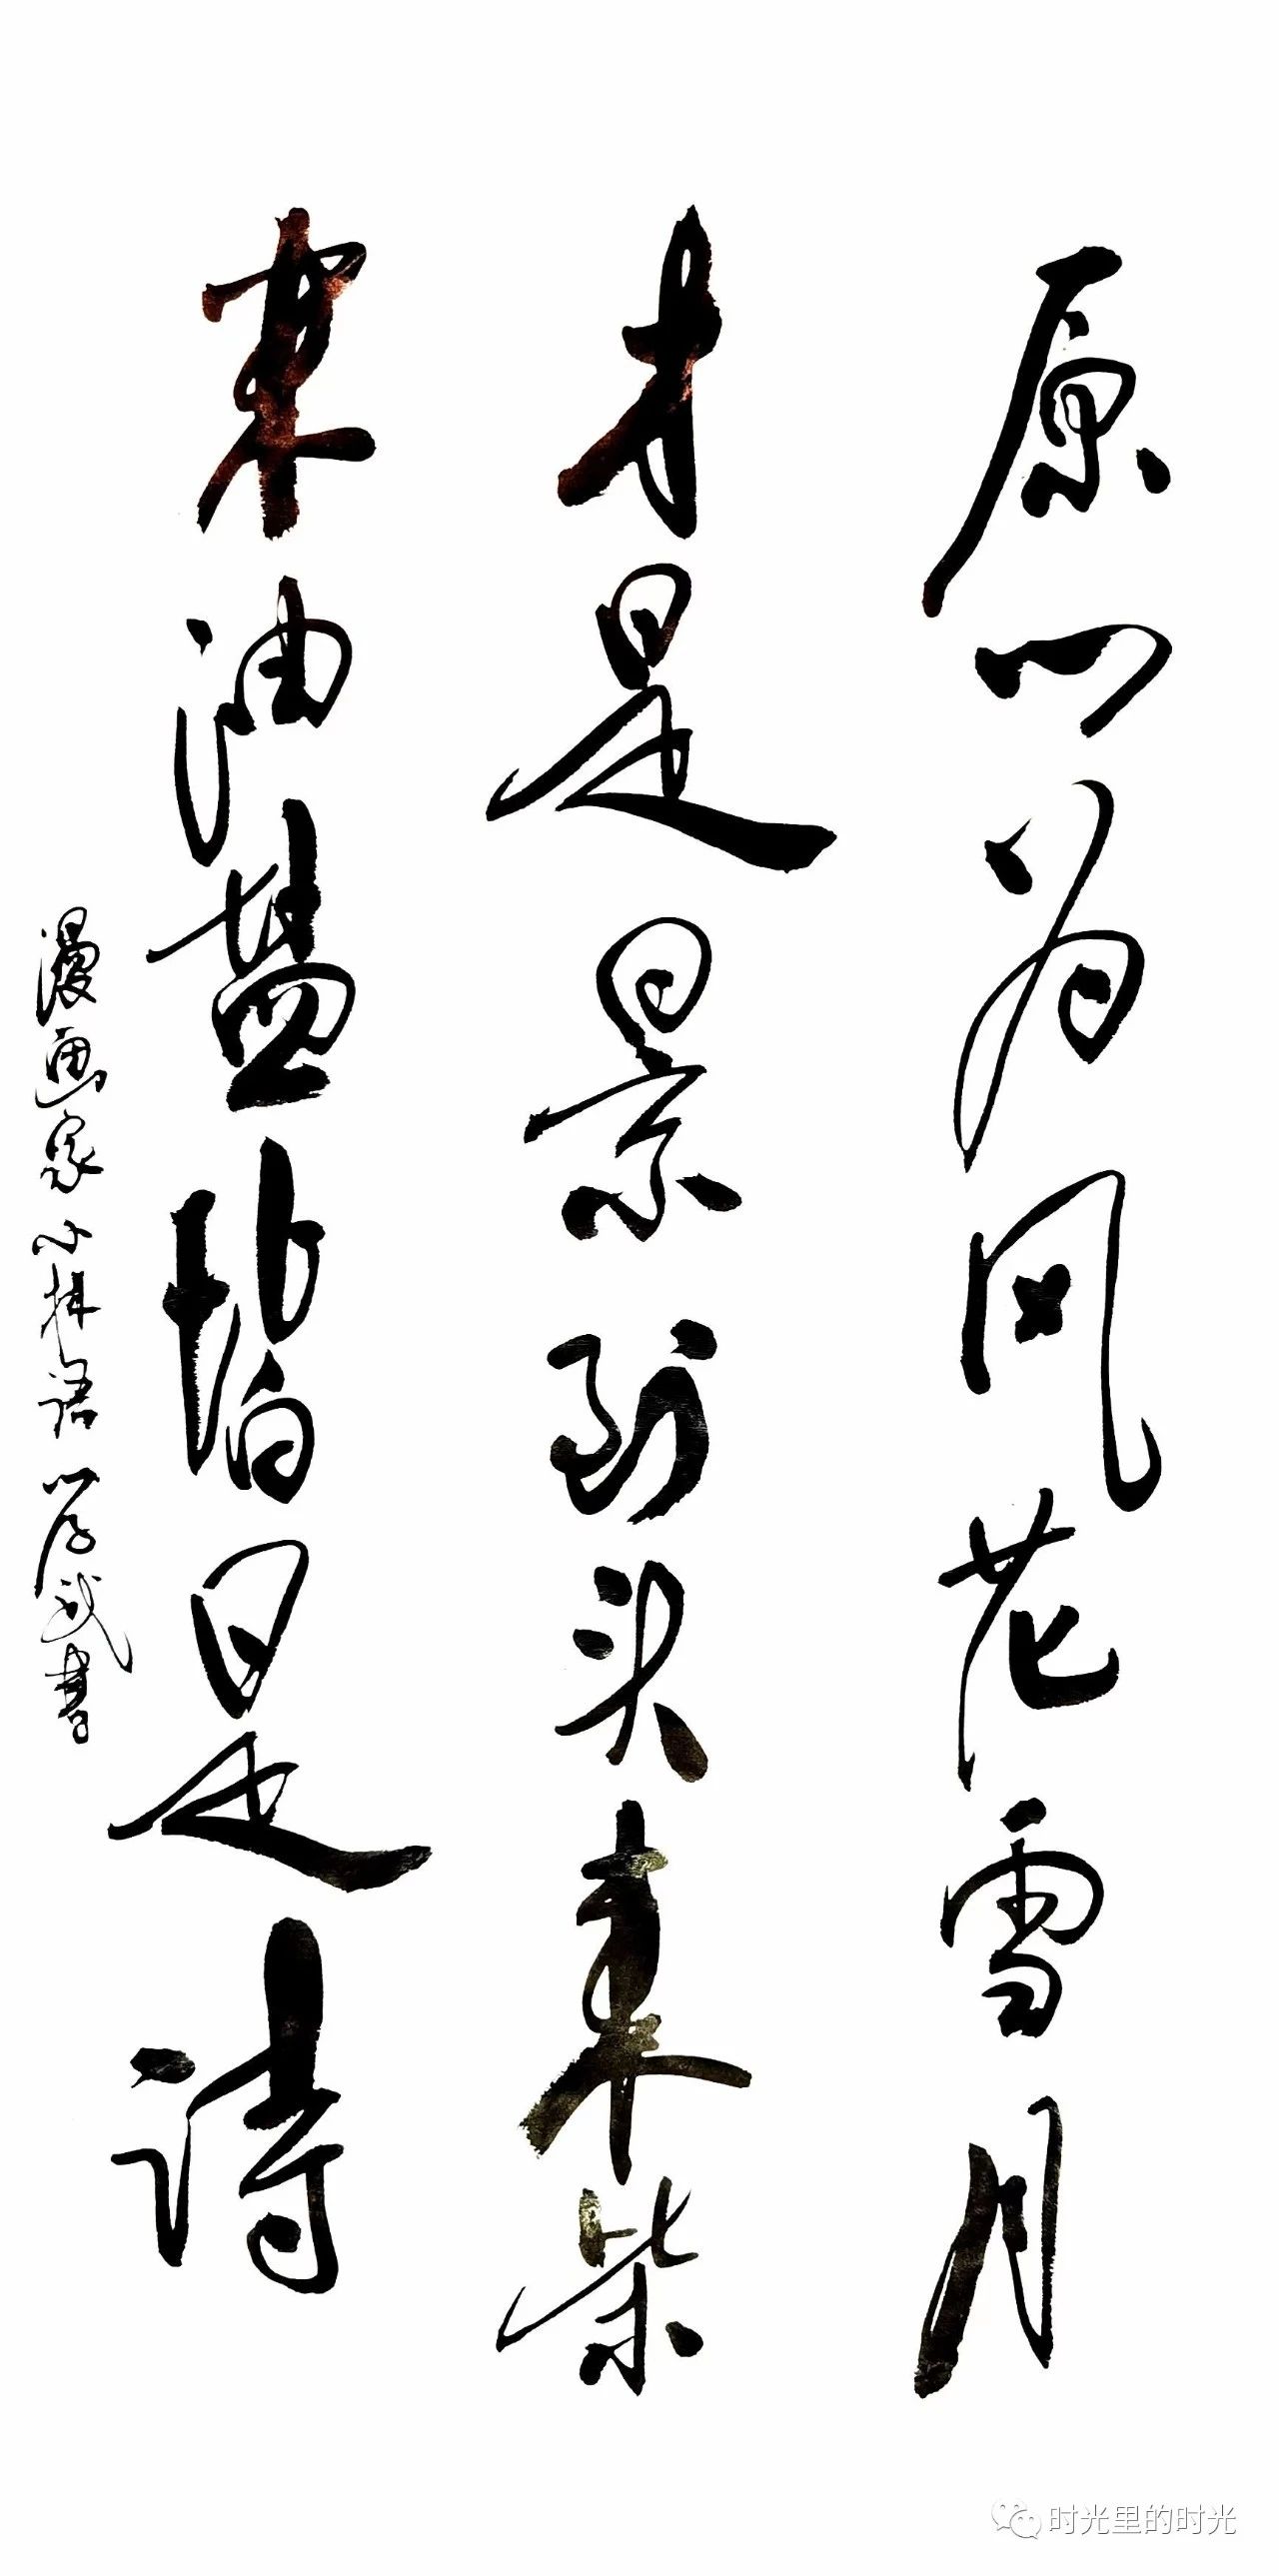 原以为风花雪月
才是景到头来柴
米油盐皆是诗
漫画家小林语学武书
时光里的时光